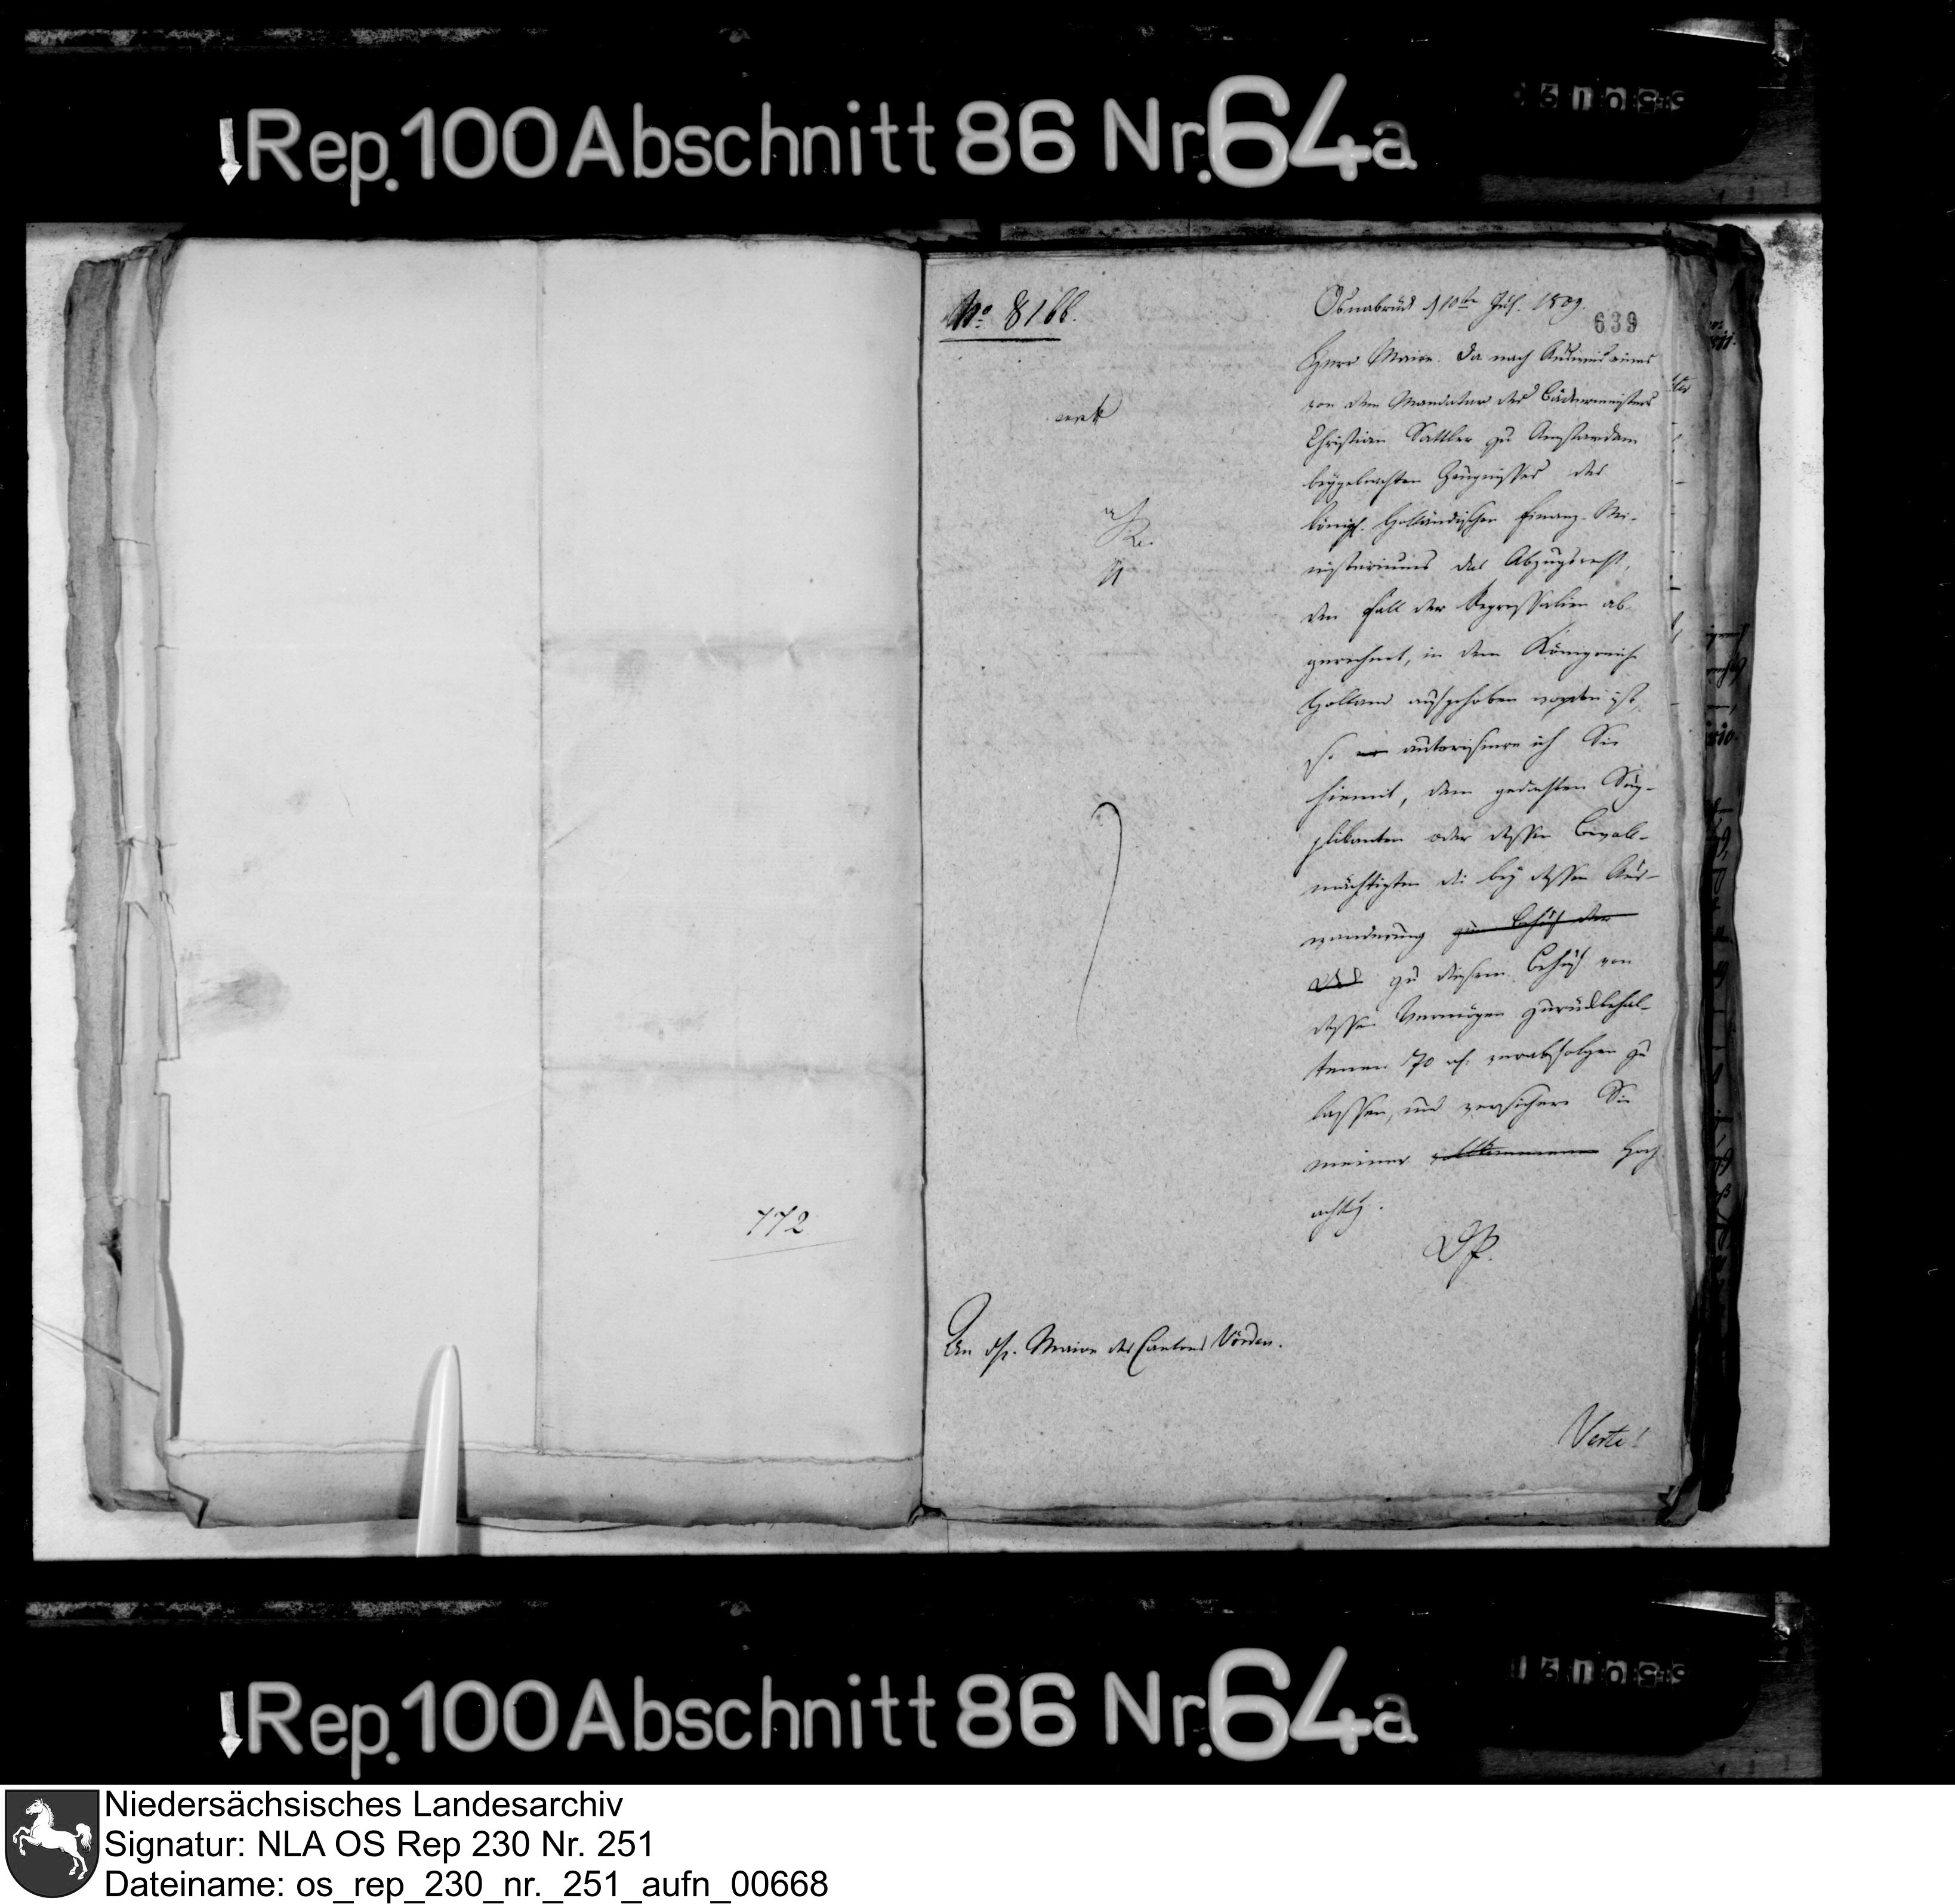 Rep. 100 Abschnitt 86 Nr. 64a
No 8166.
Osnabrück d 10ten Jul. 1809.
639
Herr Maire. Da nach Ausweis eines
von dem Mandatar des Bäckermeisters
Christian Sattler zu Amsterdam
beygebrachten Zeugnisses des
königl. Holländischen Finanz-Mi-
nisteriums das Abzugsrecht,
den Fall der Repressalien ab-
gerechnet, in dem Königreich
Holland aufgehoben worden ist,
so autorisire ich Sie
hiemit, dem gedachten Sup-
plikanten oder dessen Bevoll-
mächtigten die bey dessen Aus-
wanderung zum Behuf der
zu diesem Behuf von
dessen Vermögen zurückbehal-
tenen 70 rh. verabfolgen zu
lassen, und versichere Sie
meiner vollkommenen Hoch
achtg.
DP.
772
An H. Maire des Cantons Vörden.
Verte!
Rep. 100 Abschnitt 86 Nr. 64a
Niedersächsisches Landesarchiv
Signatur: NLA OS Rep 230 Nr. 251
Dateiname: os_rep_230_nr._251_aufn_00668